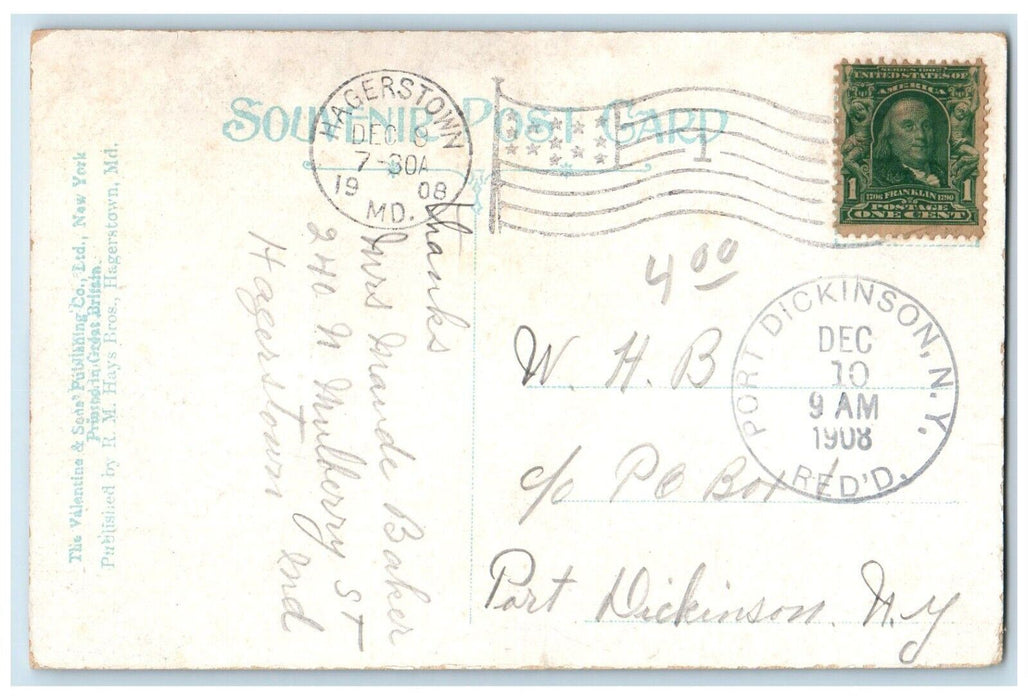 SOUVENIR POST CARD
HAGERSTOWN
DEC 8
7-30A
19 08
MD.
1
SERIES 1902
UNITED STATES OF
AMERICA
1 1706 FRANKLIN 1790 1
POSTAGE
ONE CENT
The Valentine & Sons' Publishing Co., Ltd., New York
Printed in Great Britain.
Published by R. M. Hays Bros., Hagerstown, Md.
Thanks
Mrs Maude Baker
240 N Mulberry ST
Hagerstown Md
4 00
PORT DICKINSON, N.Y.
DEC
10
9 AM
1908
REC'D.
W. H. B
c/o PO Box 1
Port Dickinson N.Y